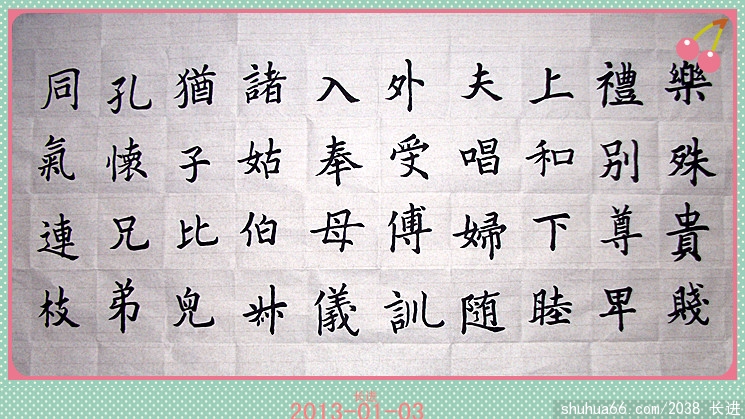 樂殊貴賤
禮別尊卑
上和下睦
夫唱婦随
外受傅訓
入奉母儀
諸姑伯叔
猶子比兒
孔懷兄弟
同氣連枝
长进
2013-01-03
shuhua66.com/2038 长进